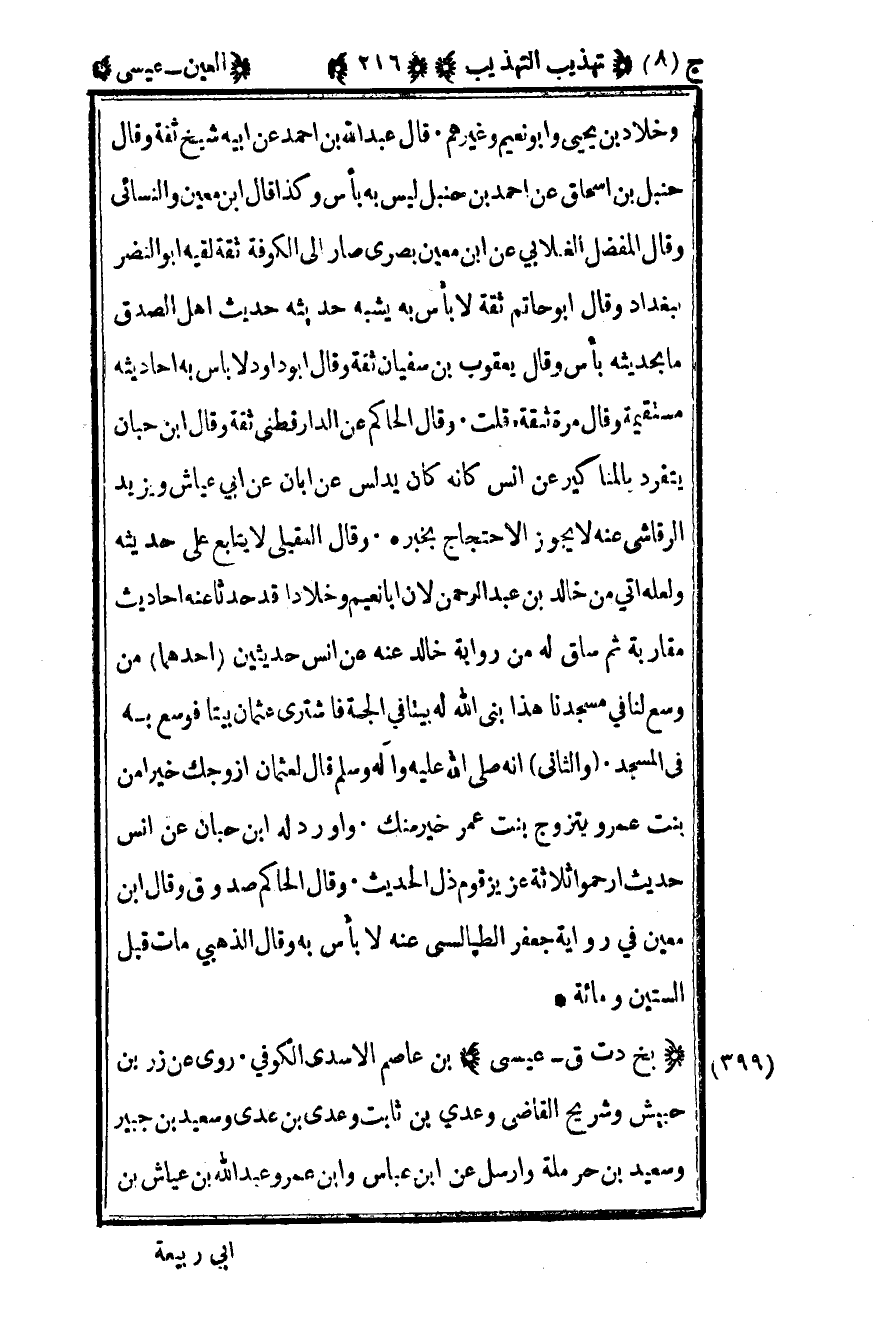 ج (٨) ﴿ تهذيب التهذيب ﴾ ﴿ ٢١٦ ﴾ ﴿ العين ـ عيسى ﴾
وخلاد بن يحيى وابونعيم وغيرهم ٠ قال عبدالله بن احمد عن ابيه شيخ ثقة وقال
حنبل بن اسحاق عن احمد بن حنبل ليس به بأس وكذا قال ابن معين والنسائى
وقال المفضل الغلابي عن ابن معين بصرى صار الى الكوفة ثقة لقيه ابو النضر
ببغداد وقال ابوحاتم ثقة لا بأس به يشبه حديثه حديث اهل الصدق
ما بحديثه بأس وقال يعقوب بن سفيان ثقة وقال ابوداود لا باس به احاديثه
مستقيمة وقال مرة ثقة٠ قلت ٠ وقال الحاكم عن الدارقطنى ثقة وقال ابن حبان
يتفرد بالمناكير عن انس كانه كان يدلس عن ابان عن ابي عياش ويزيد
الرقاشى عنه لا يجوز الاحتجاج بخبره ٠ وقال العقيلى لا يتابع على حديثه
ولعله اتي من خالد بن عبدالرحمن لان ابا نعيم وخلادا قد حدثا عنه احاديث
مقاربة ثم ساق له من رواية خالد عنه عن انس حديثين (احدهما) من
وسع لنا في مسجدنا هذا بنى الله له بيتا في الجنة فاشترى عثمان بيتا فوسع بـه
فى المسجد ٠ (والثانى) انه صلى الله عليه وآله وسلم قال لعثمان ازوجك خيرا من
بنت عمر و يتزوج بنت عمر خير منك ٠ واورد له ابن حبان عن انس
حديث ارحموا ثلاثة عزيز قوم ذل الحديث ٠ وقال الحاكم صدوق وقال ابن
معين في رواية جعفر الطيالسى عنه لا بأس به وقال الذهبي مات قبل
الستين ومائة ٠
(٣٩٩) ﴿ بخ د ت ق ـ عيسى ﴾ بن عاصم الاسدى الكوفي ٠ روى عن زر بن
حبيش وشريح القاضى وعدي بن ثابت وعدى بن عدى وسعيد بن جبير
وسعيد بن حرملة وارسل عن ابن عباس وابن عمرو وعبدالله بن عياش بن
ابي ربيعة